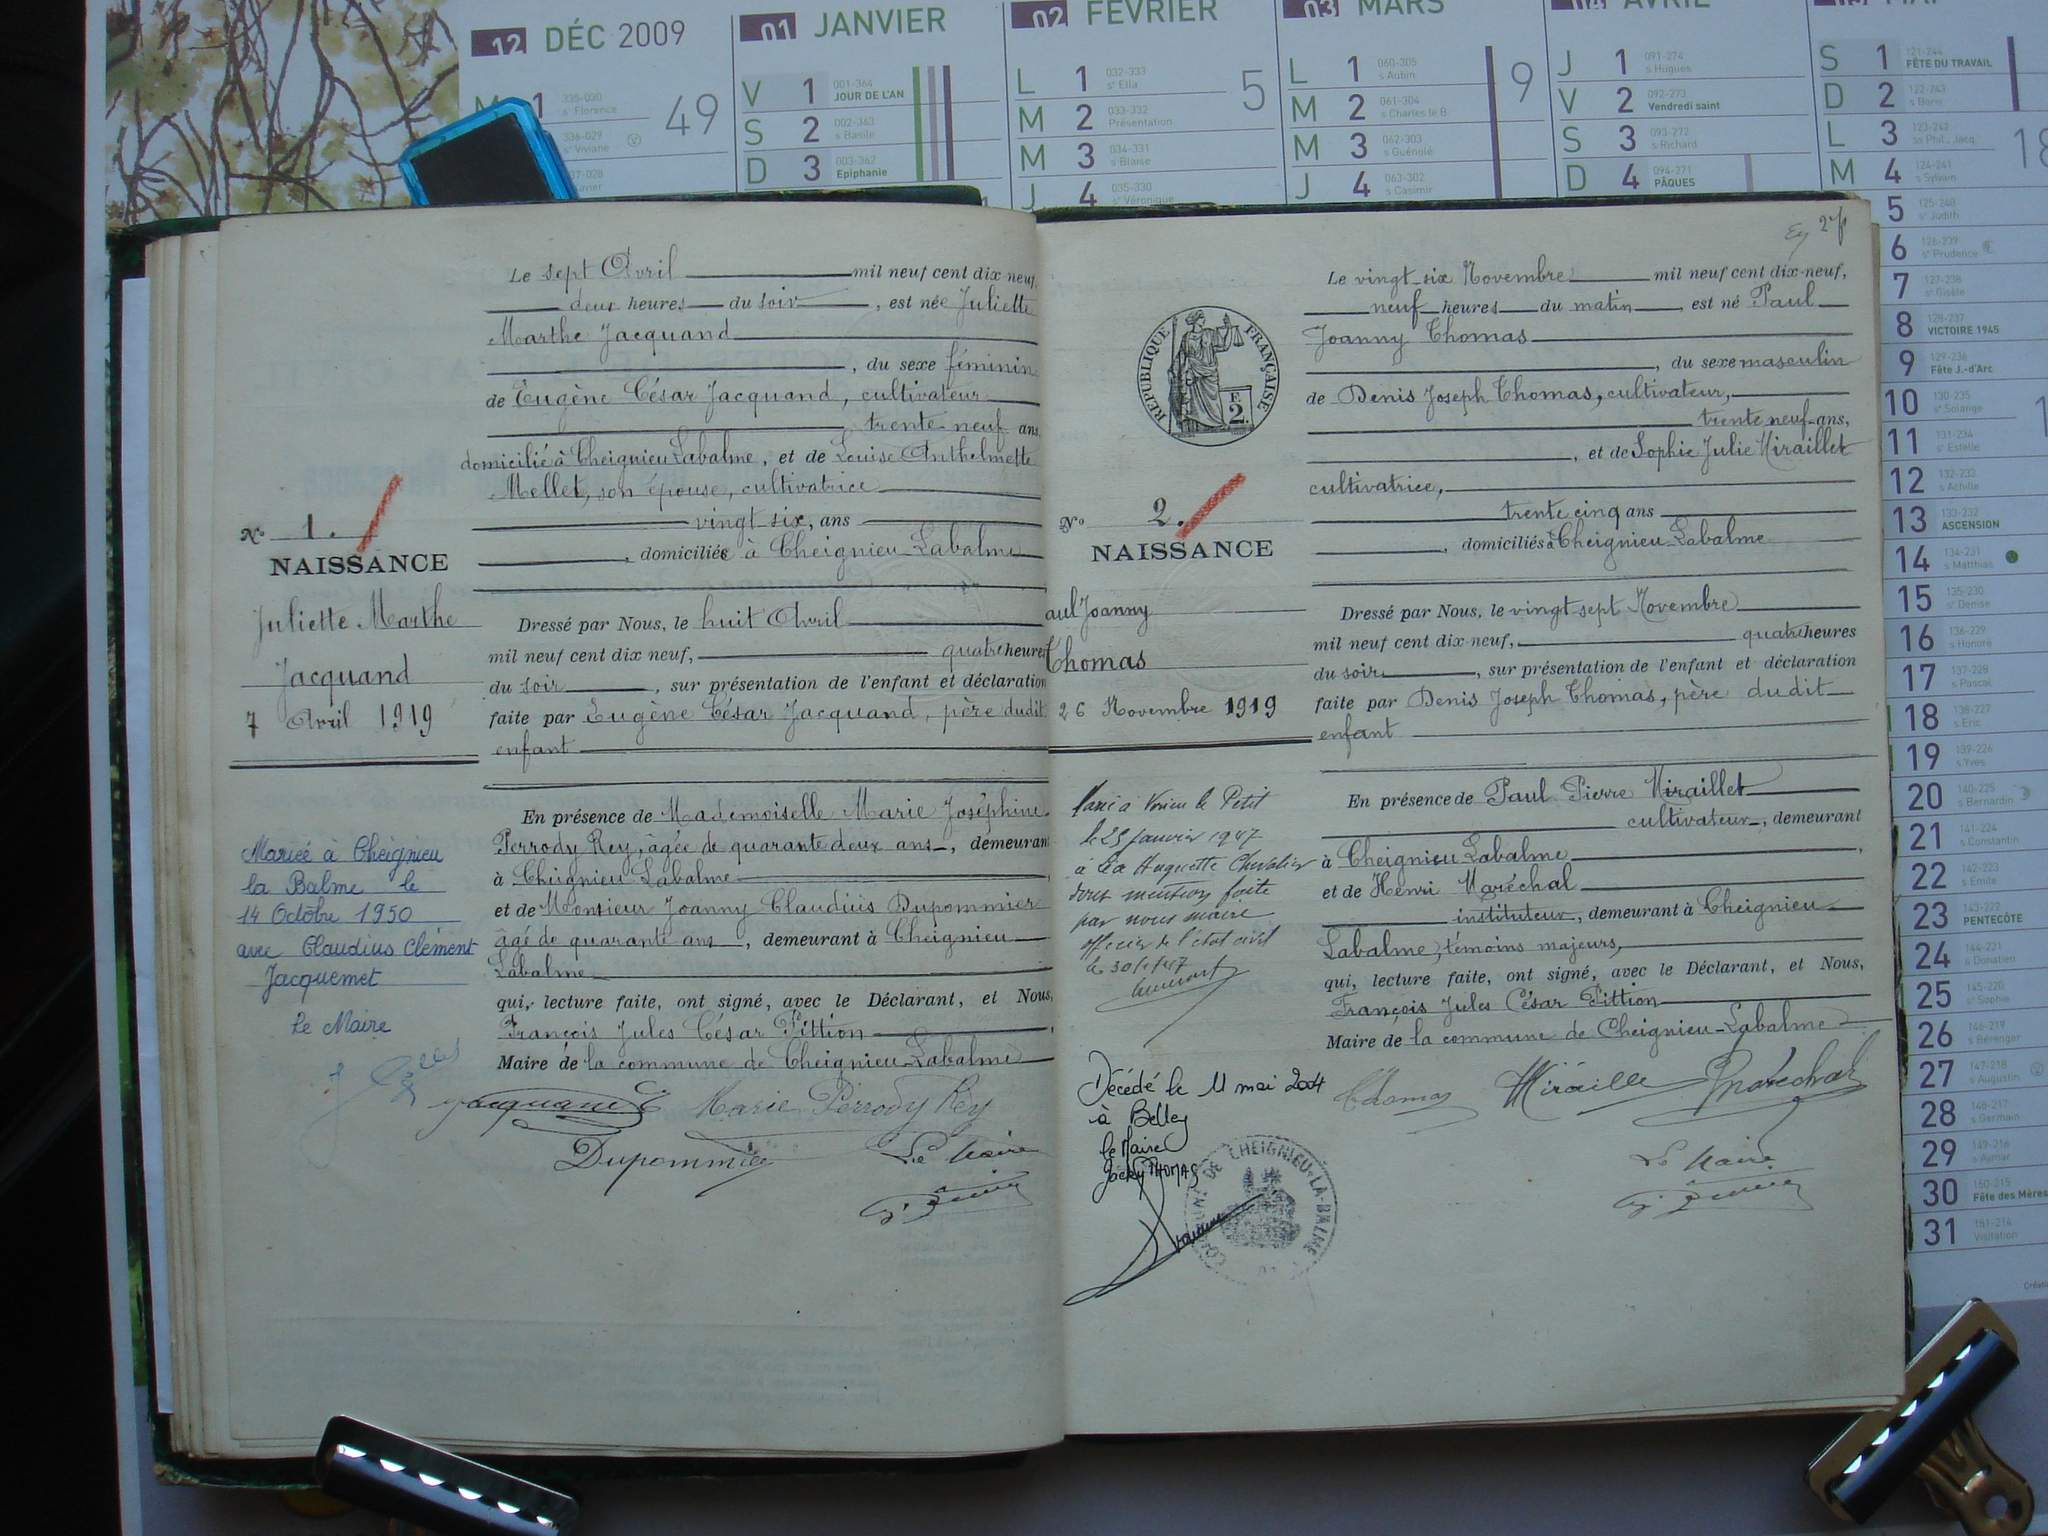 12 DÉC 2009
1 335-030 s Florence 49
336-029 se Viviane
01 JANVIER
V 1 001-364 JOUR DE L'AN
S 2 002-363 s Basile
D 3 003-362 Epiphanie
02 FÉVRIER
L 1 032-333 se Ella 5
M 2 033-332 Présentation
M 3 034-331 s Blaise
J 4 035-330 se Véronique
03 MARS
L 1 060-305 s Aubin 9
M 2 061-304 s Charles le B.
M 3 062-303 s Guénolé
J 4 063-302 s Casimir
04 AVRIL
J 1 091-274 s Hugues
V 2 092-273 Vendredi saint
S 3 093-272 s Richard
D 4 094-271 PÂQUES
S 1 121-244 FÊTE DU TRAVAIL
D 2 122-243 s Boris
L 3 123-242 ss Phil., Jacq. 18
M 4 124-241 s Sylvain
5 125-240 se Judith
6 126-239 se Prudence
7 127-238 se Gisèle
8 128-237 VICTOIRE 1945
9 129-236 Fête J.-d'Arc
10 130-235 se Solange
11 131-234 se Estelle
12 132-233 s Achille
13 133-232 ASCENSION
14 134-231 s Matthias
15 135-230 se Denise
16 136-229 s Honoré
17 137-228 s Pascal
18 138-227 s Eric
19 139-226 s Yves
20 140-225 s Bernardin
21 141-224 s Constantin
22 142-223 s Emile
23 143-222 PENTECÔTE
24 144-221 s Donatien
25 145-220 se Sophie
26 146-219 s Bérenger
27 147-218 s Augustin
28 148-217 s Germain
29 149-216 s Aymar
30 150-215 Fête des Mères
31 151-214 Visitation
Le sept Avril mil neuf cent dix neuf,
deux heures du soir, est née Juliette
Marthe Jacquand
, du sexe féminin
de Eugène César Jacquand, cultivateur
trente neuf ans,
domicilié à Cheignieu Labalme, et de Louise Anthelmette
Mellet, son épouse, cultivatrice
vingt six, ans
, domiciliés à Cheignieu-Labalme
No 1.
NAISSANCE
Juliette Marthe
Jacquand
7 Avril 1919
Dressé par Nous, le huit Avril
mil neuf cent dix neuf, quatre heures
du soir, sur présentation de l'enfant et déclaration
faite par Eugène César Jacquand, père dudit
enfant
En présence de Mademoiselle Marie Joséphine
Perrody Rey, âgée de quarante deux ans, demeurant
à Cheignieu Labalme
et de Monsieur Joanny Claudius Dupommier
âgé de quarante ans, demeurant à Cheignieu
Labalme
qui, lecture faite, ont signé, avec le Déclarant, et Nous,
François Jules César Pittion,
Maire de la commune de Cheignieu-Labalme
Mariée à Cheignieu
la Balme le
14 Octobre 1950
avec Claudius Clément
Jacquemet
Le Maire
Jacquand E Marie Perrody Rey
Dupommier Le Maire
27
Le vingt-six Novembre mil neuf cent dix-neuf,
neuf heures du matin, est né Paul
Joanny Thomas
, du sexe masculin
de Denis Joseph Thomas, cultivateur,
trente neuf ans,
, et de Sophie Julie Miraillet
cultivatrice,
trente cinq ans
, domiciliés à Cheignieu-Labalme
REPUBLIQUE FRANÇAISE
F 2.
No 2.
NAISSANCE
aul Joanny
Thomas
26 Novembre 1919
Dressé par Nous, le vingt sept Novembre
mil neuf cent dix-neuf, quatre heures
du soir, sur présentation de l'enfant et déclaration
faite par Denis Joseph Thomas, père dudit
enfant
En présence de Paul Pierre Miraillet
cultivateur, demeurant
à Cheignieu Labalme,
et de Henri Maréchal
instituteur, demeurant à Cheignieu
Labalme, témoins majeurs,
qui, lecture faite, ont signé, avec le Déclarant, et Nous,
François Jules César Pittion
Maire de la commune de Cheignieu-Labalme
Marié à Virieu le Petit
le 25 Janvier 1947
à Léa Huguette Chevalier
dont mention faite
par nous maire
officier de l'état civil
le 30/1/47
Décédé le 11 mai 2004
à Belley
le Maire
Jacky THOMAS
COMMUNE DE CHEIGNIEU-LA-BALME
Thomas Miraillet Maréchal
Le Maire